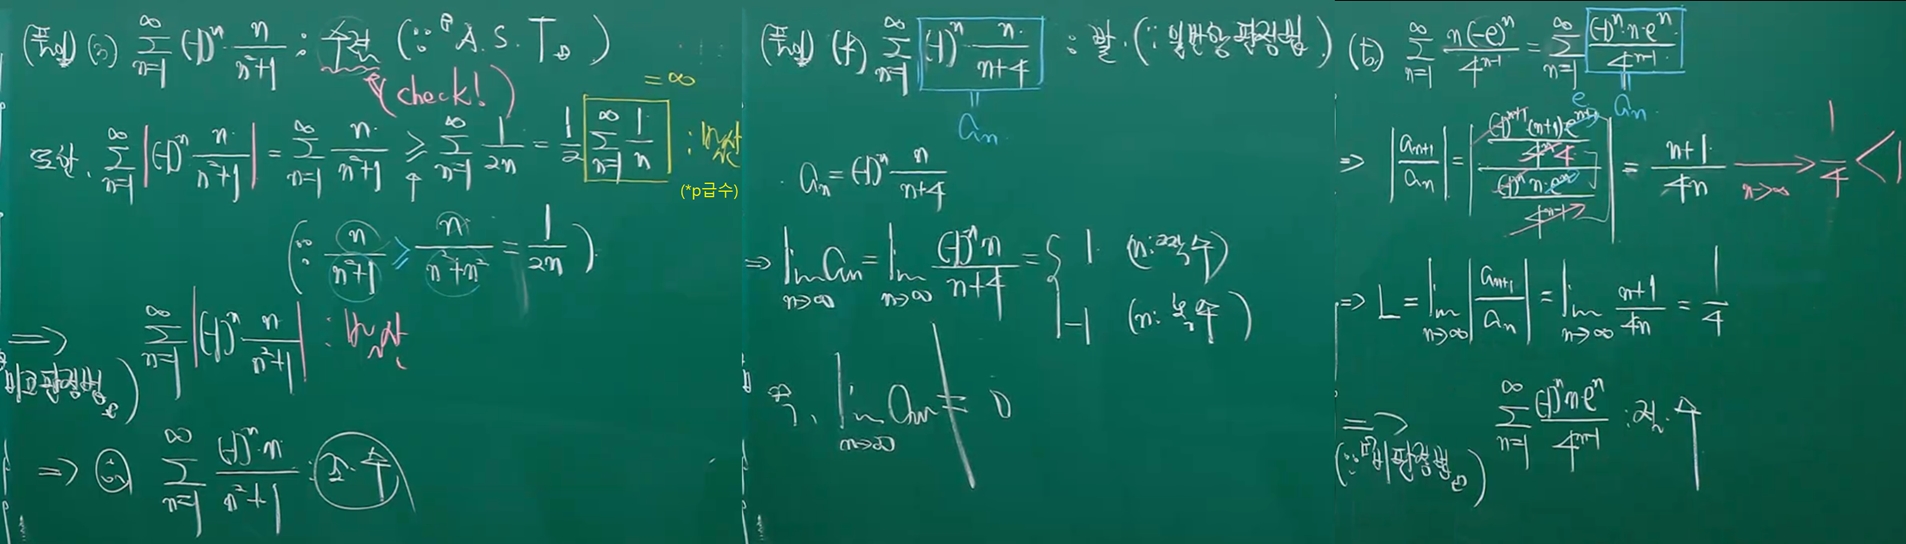 (풀이) (3) \sum_{n=1}^{\infty} (-1)^n \frac{n}{n^2+1} : 수렴 (∵ 『A.S.T』)
(check!)
= ∞
또한, \sum_{n=1}^{\infty} |(-1)^n \frac{n}{n^2+1}| = \sum_{n=1}^{\infty} \frac{n}{n^2+1} ≥ \sum_{n=1}^{\infty} \frac{1}{2n} = \frac{1}{2} \sum_{n=1}^{\infty} \frac{1}{n} : 발산
(*p급수)
(∵ \frac{n}{n^2+1} ≥ \frac{n}{n^2+n^2} = \frac{1}{2n})
=> \sum_{n=1}^{\infty} |(-1)^n \frac{n}{n^2+1}| : 발산
비교판정법)
=> ∴ \sum_{n=1}^{\infty} \frac{(-1)^n n}{n^2+1} : 조.수
(풀이) (4) \sum_{n=1}^{\infty} (-1)^n \frac{n}{n+4} : 발. (∵ 일반항 판정법)
a_n
a_n = (-1)^n \frac{n}{n+4}
=> \lim_{n→∞} a_n = \lim_{n→∞} \frac{(-1)^n n}{n+4} = { 1 (n: 짝수)
-1 (n: 홀수)
즉, \lim_{n→∞} a_n ≠ 0
(5) \sum_{n=1}^{\infty} \frac{n(-e)^n}{4^{n-1}} = \sum_{n=1}^{\infty} \frac{(-1)^n n·e^n}{4^{n-1}}
a_n
=> |\frac{a_{n+1}}{a_n}| = |\frac{\frac{(-1)^{n+1}(n+1)·e^{n+1}}{4^{n-1}·4}}{\frac{(-1)^n n·e^n}{4^{n-1}}}| e = \frac{n+1}{4n} → n→∞ \frac{1}{4} < 1
=> L = \lim_{n→∞} |\frac{a_{n+1}}{a_n}| = \lim_{n→∞} \frac{n+1}{4n} = \frac{1}{4}
=> \sum_{n=1}^{\infty} \frac{(-1)^n n·e^n}{4^{n-1}} : 절.수
(∵ 『비판정법』)